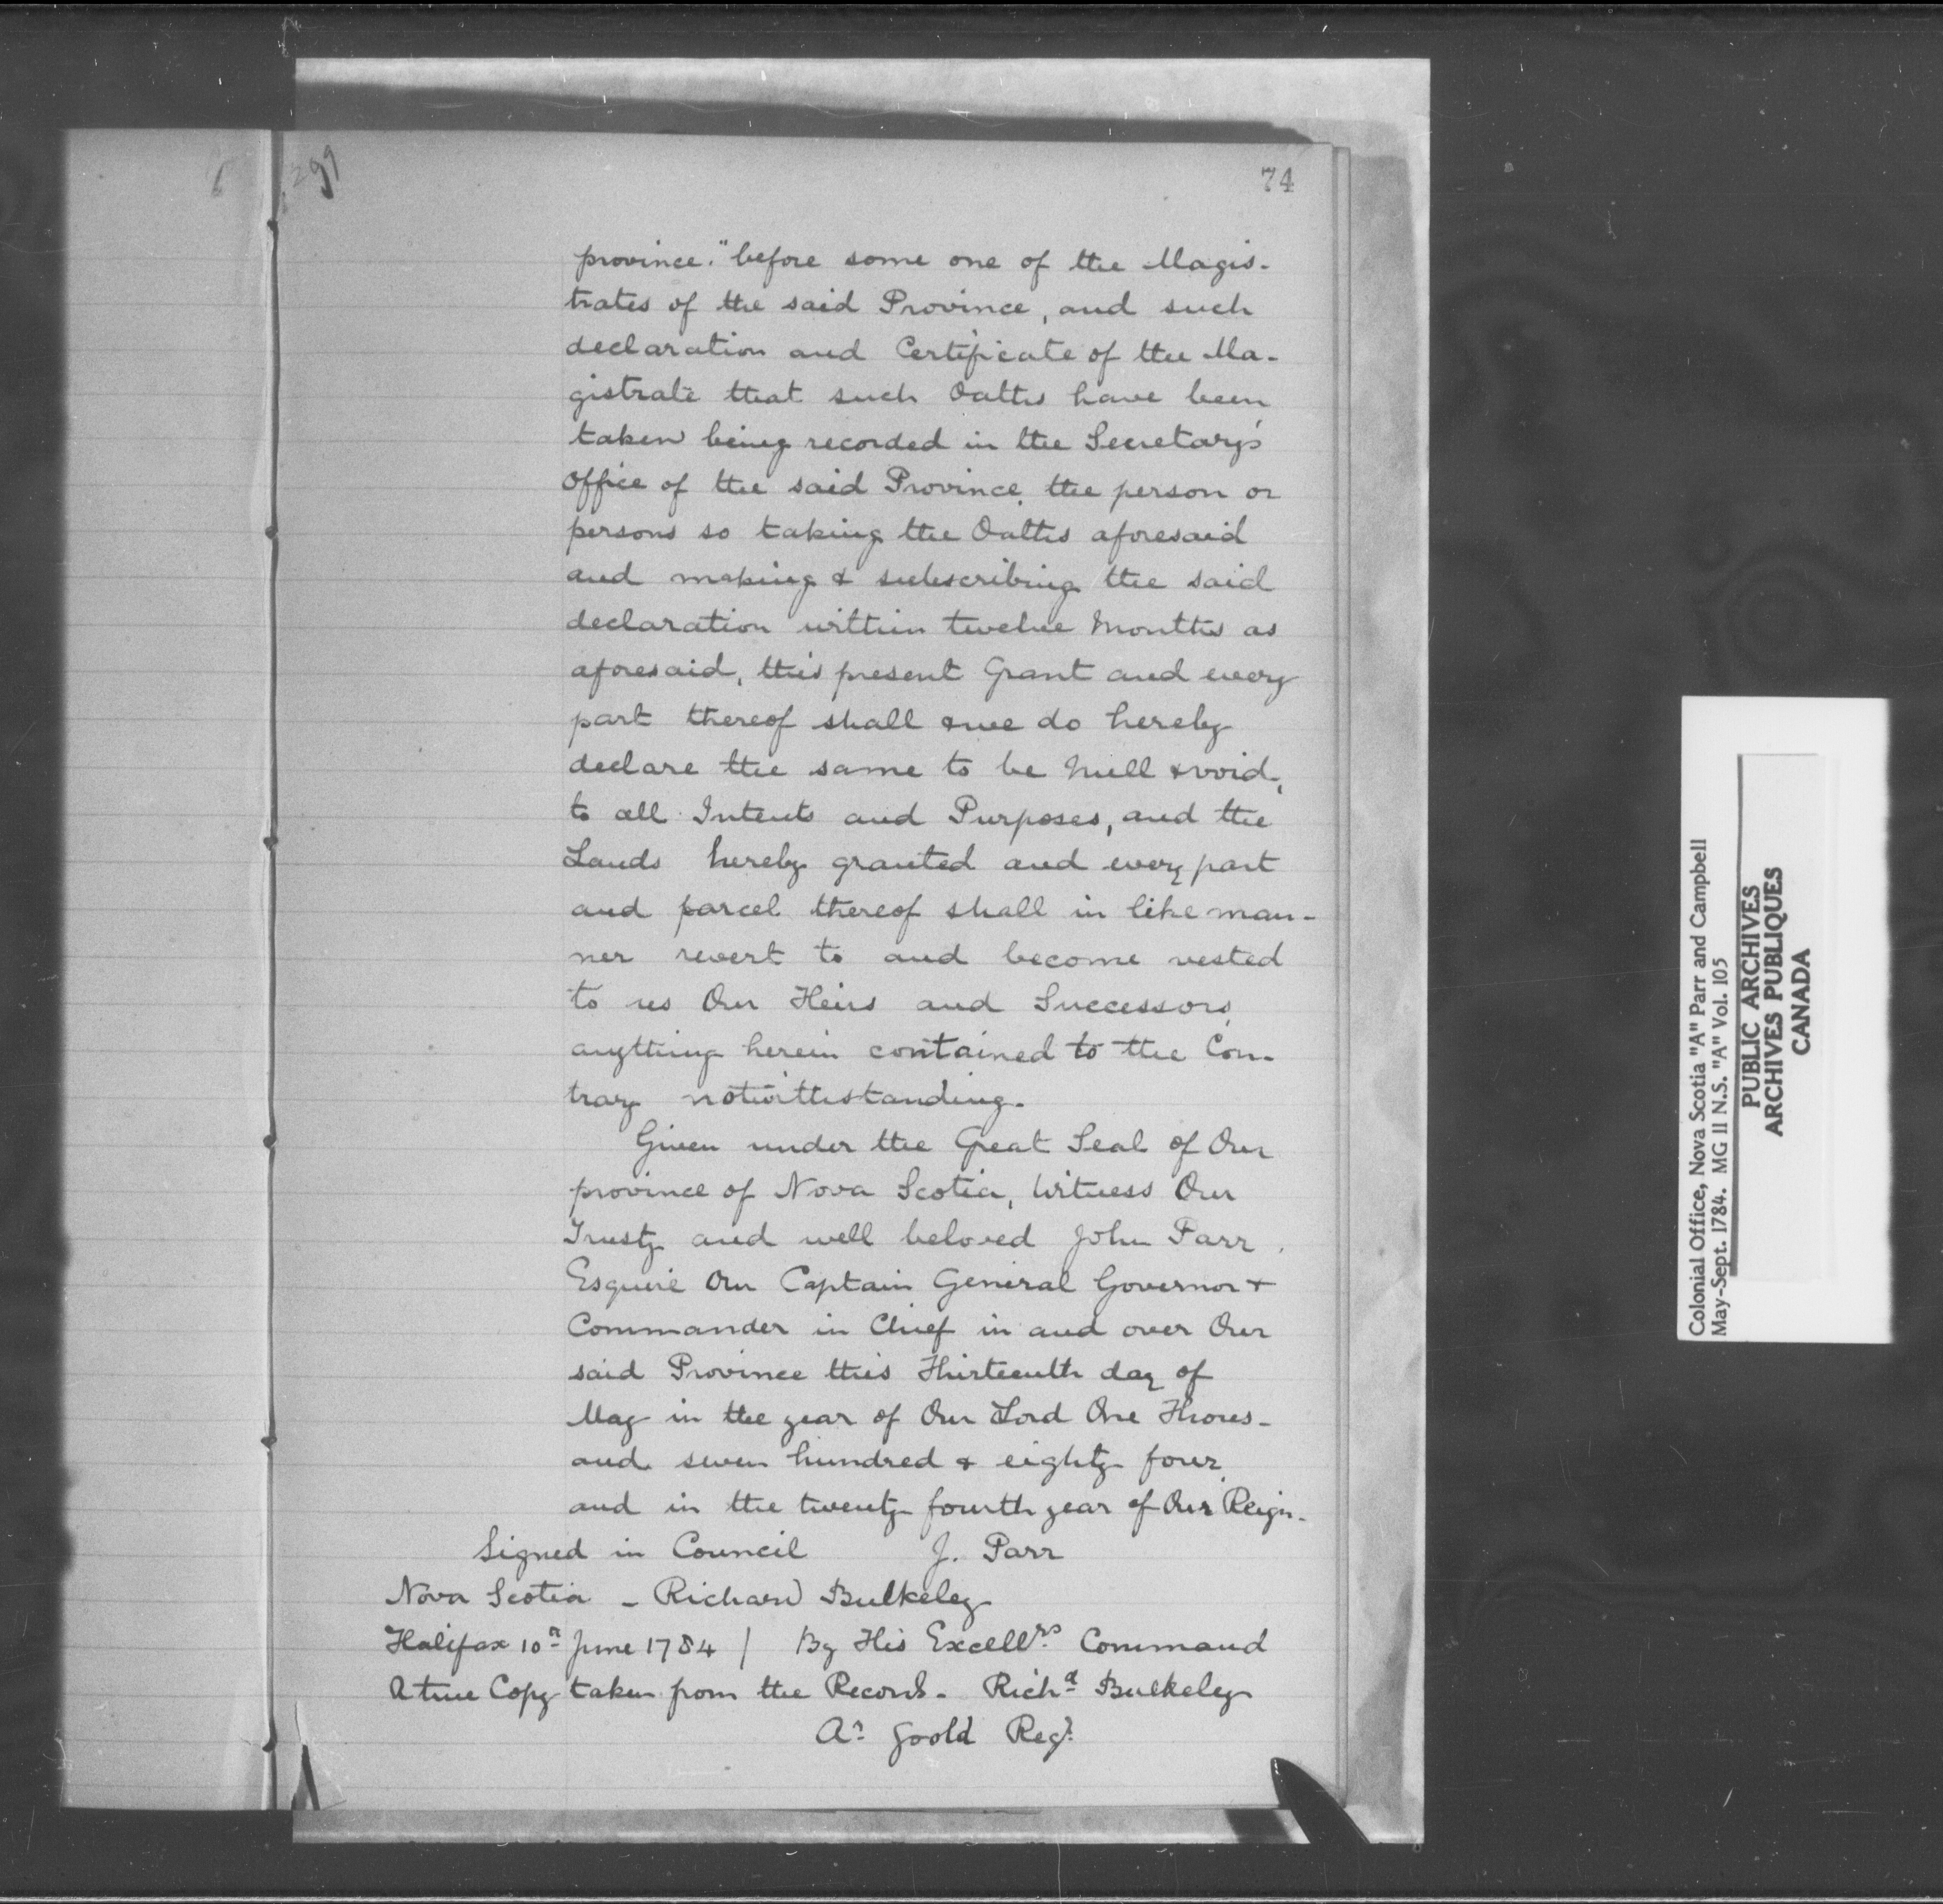 299
74
province." before some one of the Magis-
trates of the said Province, and such
declaration and Certificate of the Ma-
gistrate that such Oaths have been
taken being recorded in the Secretary's
Office of the said Province, the person or
persons so taking the Oaths aforesaid
and making & subscribing the said
declaration within twelve Months as
aforesaid, this present Grant and every
part thereof shall & we do hereby
declare the same to be Null & void,
to all Intents and Purposes, and the
Lands hereby granted and every part
and parcel thereof shall in like man-
ner revert to and become vested
to us Our Heirs and Successors,
anything herein contained to the Con-
trary notwithstanding.
Given under the Great Seal of Our
province of Nova Scotia, Witness Our
Trusty and well beloved John Parr,
Esquire Our Captain General Governor &
Commander in Chief in and over Our
said Province this Thirteenth day of
May in the year of Our Lord One Thous-
and seven hundred & eighty four,
and in the twenty fourth year of Our Reign.
Signed in Council J. Parr
Nova Scotia - Richard Bulkeley
Halifax 10th June 1784 / By His Excellys Command
A true Copy taken from the Record. Richd Bulkeley
Ar Goold Regr
Colonial Office, Nova Scotia "A" Parr and Campbell
May-Sept. 1784. MG 11 N.S. "A" Vol. 105
PUBLIC ARCHIVES
ARCHIVES PUBLIQUES
CANADA